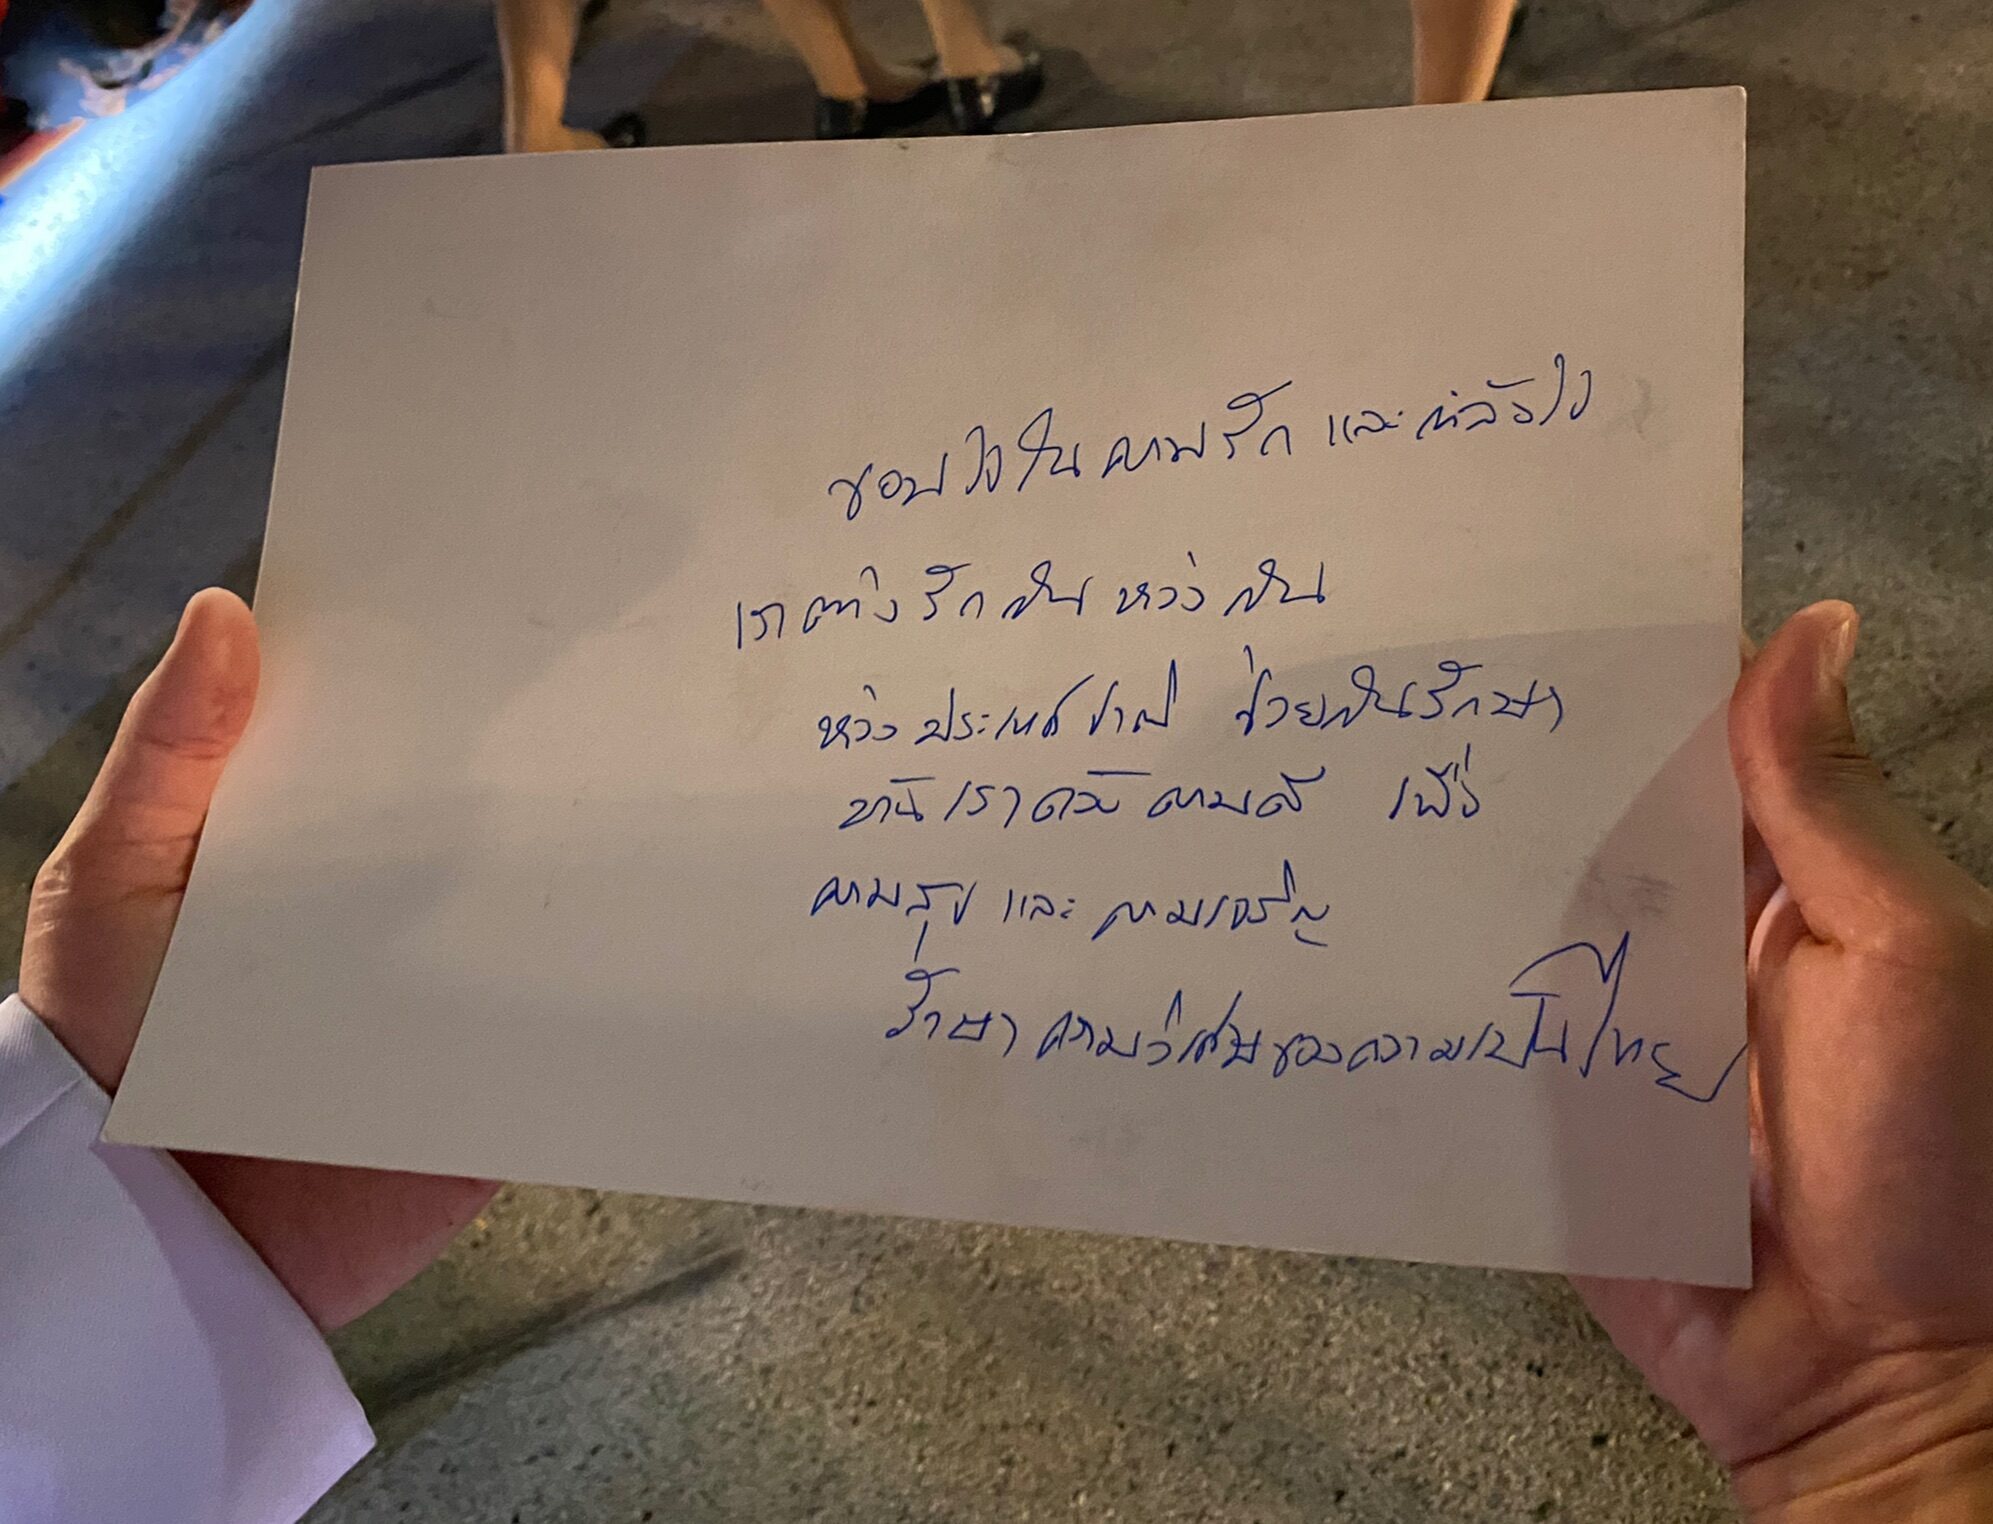 ขอบใจในความรัก และกำลังใจ
เราต่างรักกัน ห่วงกัน
ห่วงประเทศชาติ ช่วยกันรักษา
บ้านเราด้วยความดี เพื่อ
ความสุข และ ความเจริญ
รักษาความวิเศษของความเป็นไทย